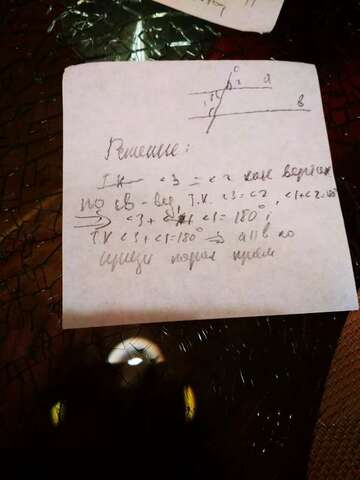 a
2
в
Решение:
Т.к <3 = <2 как вертик
по св-ву, т.к. <3=<2, <1+<2=180°
=> <3 + <1 = 180°;
Т.к <3+<1=180° => a||в по
призн парал прям